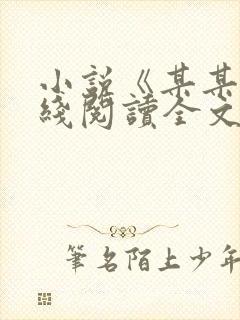 小説《某某
綫閱讀全文
筆名陌上少年